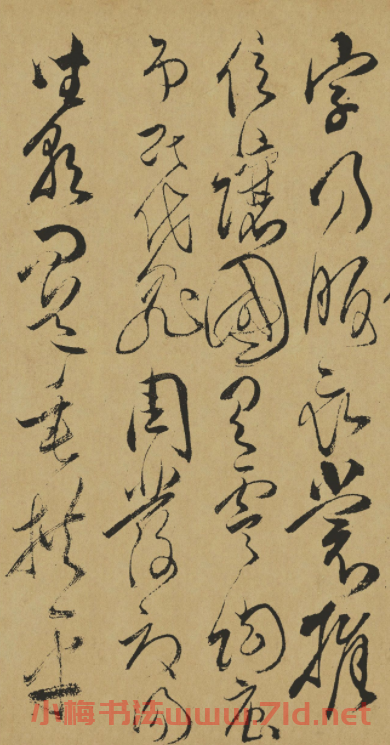 字乃服衣裳推
位讓國有虞陶唐
弔民伐罪周發殷湯
坐朝問道垂拱平
小梅书法www.7ld.net